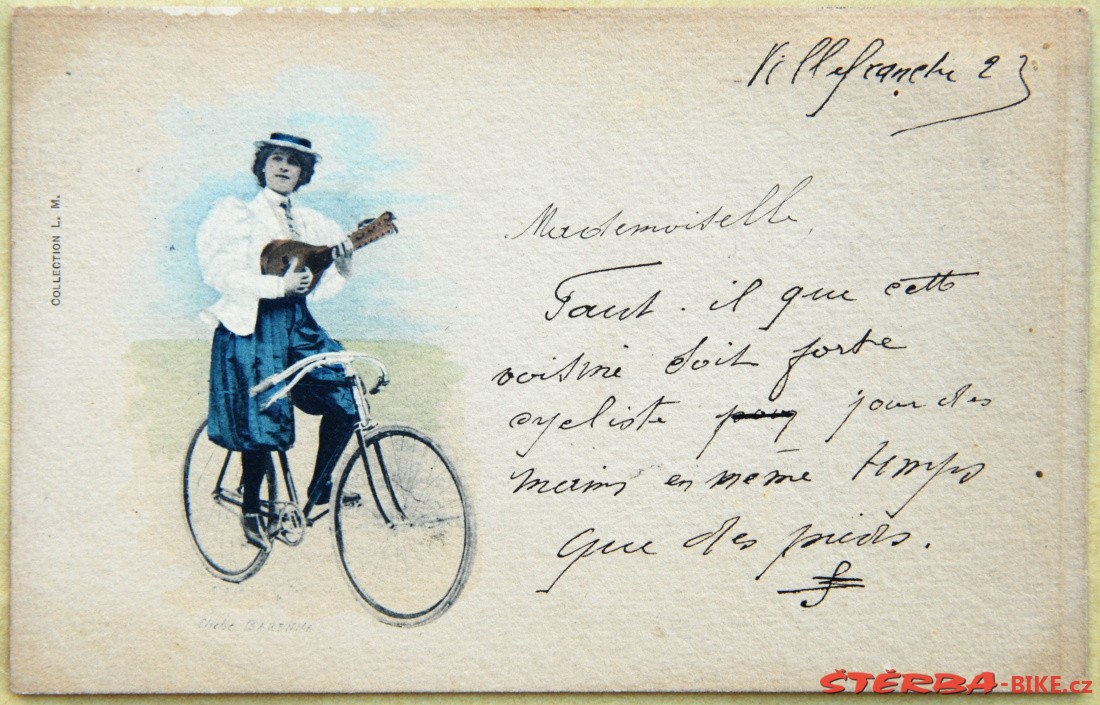 Villefranche 23
COLLECTION L. M.
Mademoiselle,
Faut-il que cette
voisine soit forte
cycliste pour jouer des
mains en même temps
que des pieds.
Cliché
ŠTĚRBA-BIKE.cz